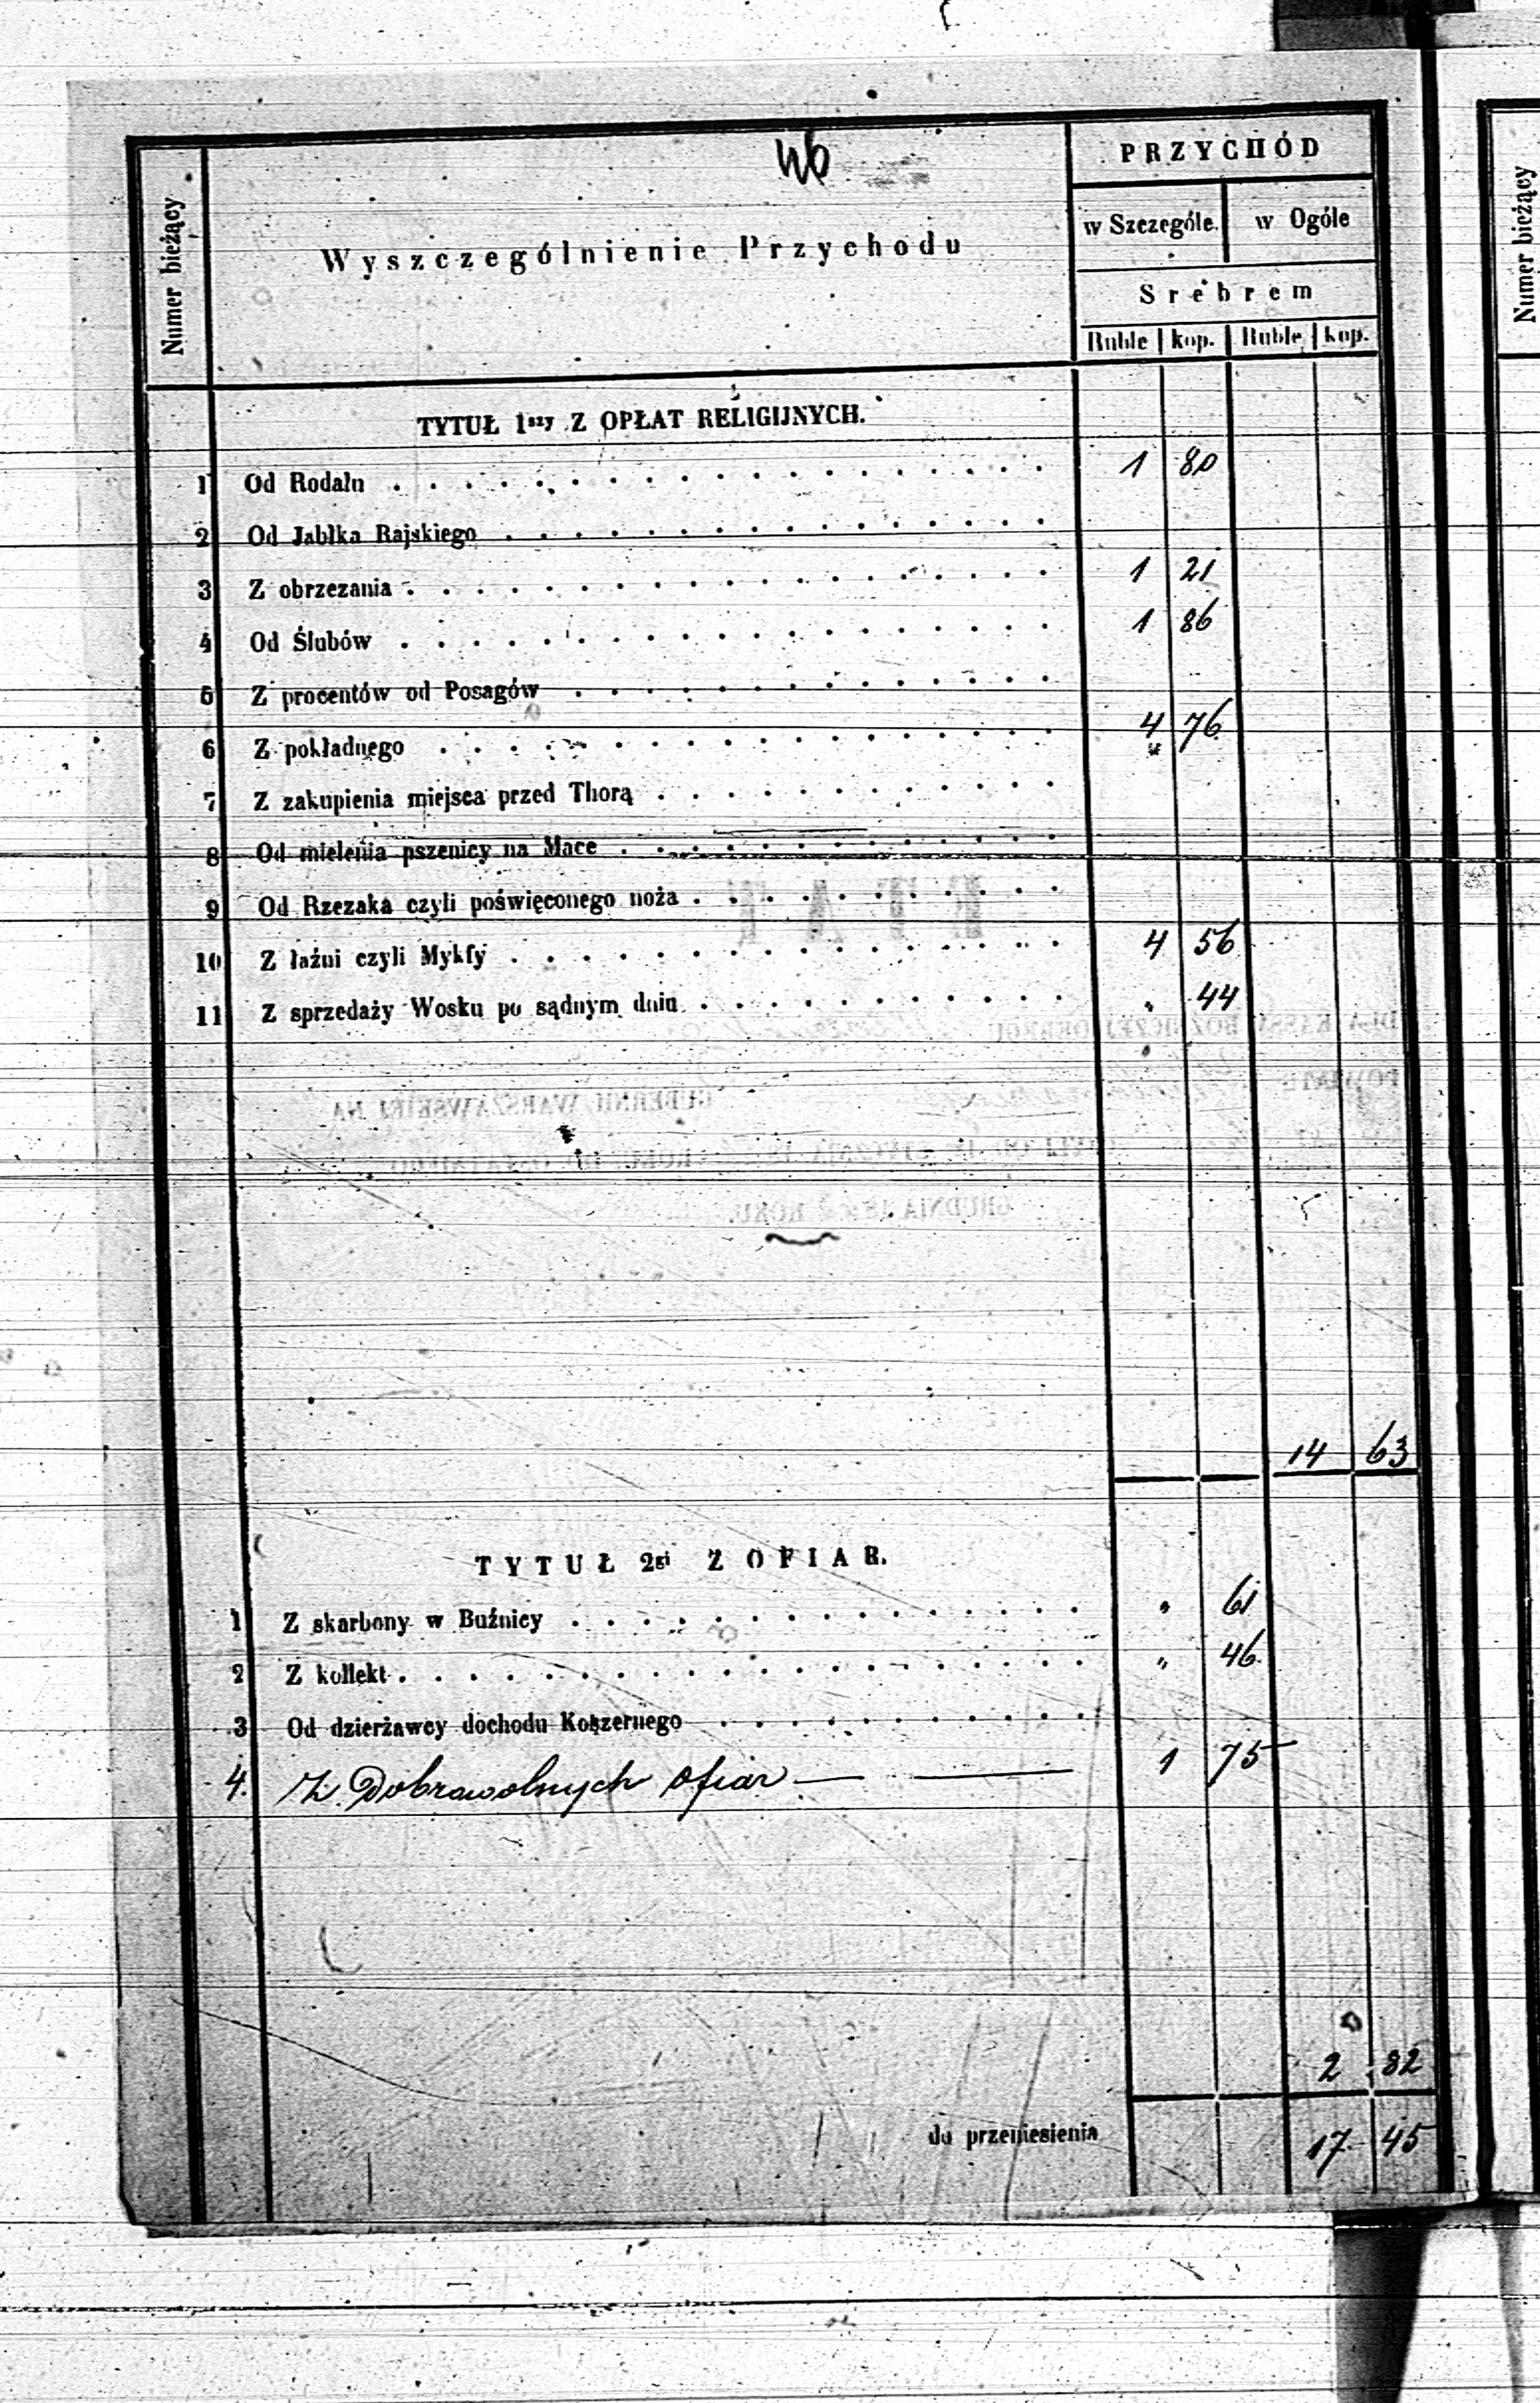 46
Numer bieżący
Wyszczególnienie Przychodu
PRZYCHÓD
w Szczególe. w Ogóle
Srebrem
Ruble kop. Ruble kop.
Numer bieżący
TYTUŁ 1szy Z OPŁAT RELIGIJNYCH.
1 Od Rodału . . . . . . . . . . 1 80
2 Od Jabłka Rajskiego . . . . . . . . . .
3 Z obrzezania . . . . . . . . . . 1 21
4 Od Ślubów . . . . . . . . . . 1 86
5 Z procentów od Posagów . . . . . . . . . .
6 Z pokładnego . . . . . . . . . . 4 76
7 Z zakupienia miejsca przed Thorą . . . . . . . . . .
8 Od mielenia pszenicy na Mace . . . . . . . . . .
9 Od Rzezaka czyli poświęconego noża . . . . . . . . . .
10 Z łaźni czyli Mykfy . . . . . . . . . . 4 56
11 Z sprzedaży Wosku po sądnym dniu . . . . . . . . . . " 44
14 63
TYTUŁ 2gi Z OFIAR.
1 Z skarbony w Buźnicy . . . . . . . . . . " 61
2 Z kollekt . . . . . . . . . . " 46
3 Od dzierżawcy dochodu Koszernego . . . . . . . . . .
4. Z Dobrowolnych ofiar — — 1 75
2 82
do przeniesienia 17 45